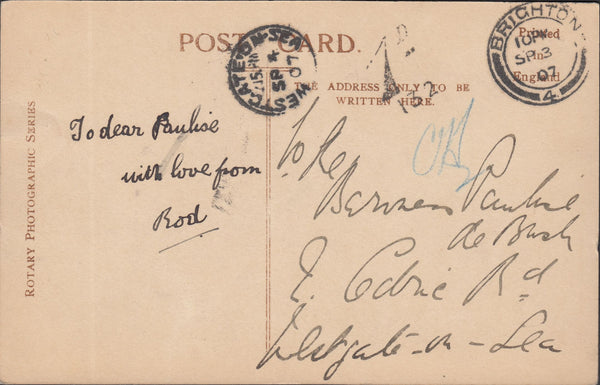 POST CARD.
THE ADDRESS ONLY TO BE
WRITTEN HERE.
Printed
in
England
BRIGHTON
10 PM
SP 3
07
4
WESTGATE-ON-SEA
SP 4
07
ROTARY PHOTOGRAPHIC SERIES
To dear Pauline
with love from
Rod
To the
Baroness Pauline
de Bush
Cedric Rd
Westgate-on-Sea